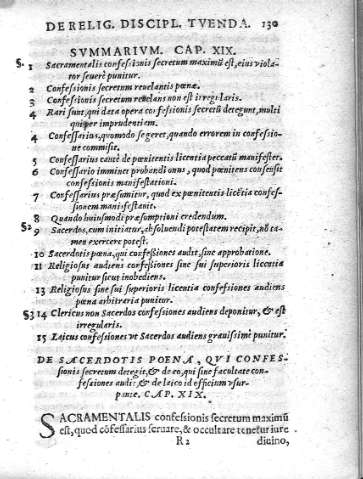 DE RELIG. DISCIPL. TVENDA. 130
SVMMARIVM. CAP. XIX.
§. 1 Sacramentalis confessionis secretum maximũ est, eius violator seuerè punitur.
2 Confessionis secretum reuelantis pœnæ.
3 Confessionis secretum reuelans non est irregularis.
4 Rari sunt, qui data opera confessionis secretũ detegunt, multi
qui per imprudentiam.
4 Confessarius, quomodo se geret, quando errorem in confessione
commisit.
5 Confessarius cautè de pœnitentis licentia peccatũ manifestet.
6 Confessario imminet probandi onus, quod pœnitens consensit
confessionis manifestationi.
7 Confessarius præsumitur, quod ex pœnitentis licẽtia confessionem
manifestauit.
8 Quando huiusmodi præsumptioni credendum.
§2 9 Sacerdos, cum initiatur, absoluendi potestatem recipit, nõ tamen
exercere potest.
10 Sacerdotis pœna, qui confessiões audit, sine approbatione.
11 Religiosus audiens confessiones sine sui superioris licentia
punitur sicut inobediens.
13 Religiosus sine sui superioris licentia confessiones audiens
pœna arbitraria punitur.
§3 14 Clericus non Sacerdos confessiones audiens deponitur, & est
irregularis.
15 Laicus confessiones vt Sacerdos audiens grauissimè punitur.
DE SACERDOTIS POENA, QVI CONFESsionis
secretum detegit, & de eo, qui sine facultate confessiones
audit: & de laico id officium vsurpante.
CAP. XIX.
SACRAMENTALIS confessionis secretum maximũ
est, quod cõfessarius seruare, & occultare tenetur iure
R 2 diuino,